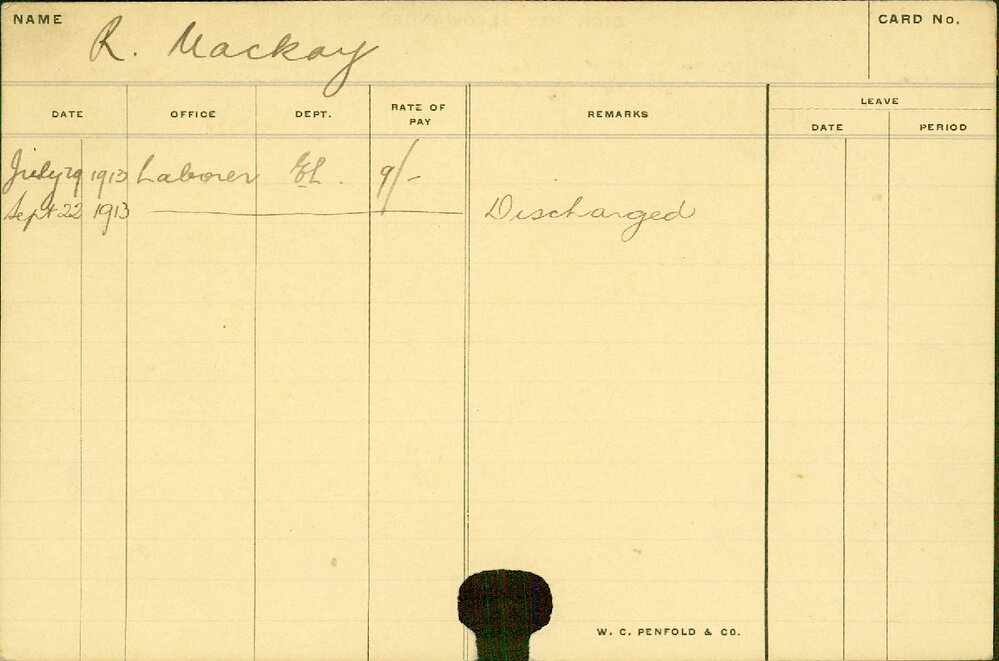 NAME R. Mackay CARD No.
DATE OFFICE DEPT. RATE OF PAY REMARKS LEAVE
DATE PERIOD
July 29 1913 Laborer EL. 9/-
Sept 22 1913 Discharged
W. C. PENFOLD & CO.